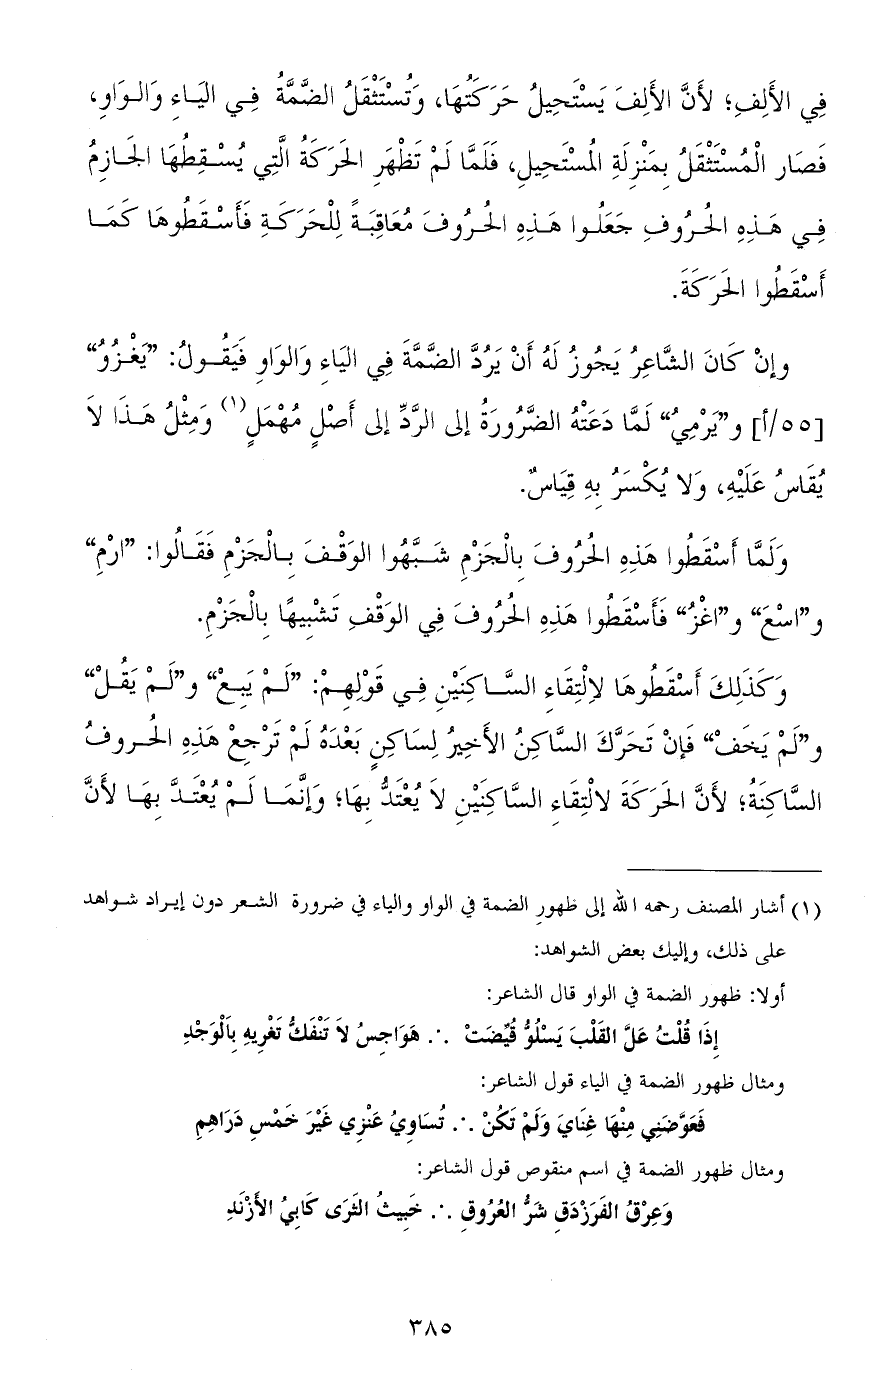 فِي الأَلِفِ؛ لأَنَّ الأَلِفَ يَسْتَحِيلُ حَرَكَتُهَا، وَتُسْتَثْقَلُ الضَّمَّةُ فِي اليَاءِ وَالوَاوِ،
فَصَار الْمُسْتَثْقَلُ بِمَنْزِلَةِ المُسْتَحِيلِ، فَلَمَّا لَمْ تَظْهَرِ الحَرَكَةُ الَّتِي يُسْقِطُهَا الجَازِمُ
فِي هَذِهِ الحُرُوفِ جَعَلُوا هَذِهِ الحُرُوفَ مُعَاقِبَةً لِلْحَرَكَةِ فَأَسْقَطُوهَا كَمَا
أَسْقَطُوا الحَرَكَةَ.
وإِنْ كَانَ الشَّاعِرُ يَجُوزُ لَهُ أَنْ يَرُدَّ الضَّمَّةَ فِي اليَاءِ وَالوَاوِ فَيَقُولُ: ”يَغْزُوُ“
[٥٥/أ] و”يَرْمِيُ“ لَمَّا دَعَتْهُ الضَّرُورَةُ إلى الرَّدِّ إلى أَصْلٍ مُهْمَلٍ(١) وَمِثْلُ هَذَا لاَ
يُقَاسُ عَلَيْهِ، وَلا يُكْسَرُ بِهِ قِيَاسٌ.
وَلَمَّا أَسْقَطُوا هَذِهِ الحُرُوفَ بِالْجَزْمِ شَبَّهُوا الوَقْفَ بِالْجَزْمِ فَقَالُوا: ”ارْمِ“
و”اسْعَ“ و”اغْزُ“ فَأَسْقَطُوا هَذِهِ الحُرُوفَ فِي الوَقْفِ تَشْبِيهًا بِالْجَزْمِ.
وَكَذَلِكَ أَسْقَطُوهَا لاِلْتِقَاءِ السَّاكِنَيْنِ فِي قَوْلِهِمْ: ”لَمْ يَبِعْ“ و”لَمْ يَقُلْ“
و”لَمْ يَخَفْ“ فَإِنْ تَحَرَّكَ السَّاكِنُ الأَخِيرُ لِسَاكِنٍ بَعْدَهُ لَمْ تَرْجِعْ هَذِهِ الحُروفُ
السَّاكِنَةُ؛ لأَنَّ الحَرَكَةَ لالْتِقَاءِ السَّاكِنَيْنِ لاَ يُعْتَدُّ بِهَا؛ وَإِنَّمَا لَمْ يُعْتَدَّ بِهَا لأَنَّ
(١) أشار المصنف رحمه الله إلى ظهور الضمة في الواو والياء في ضرورة الشعر دون إيراد شواهد
على ذلك، وإليك بعض الشواهد:
أولا: ظهور الضمة في الواو قال الشاعر:
إِذَا قُلْتُ عَلَّ القَلْبَ يَسْلُوُ قُيِّضَتْ ∴ هَوَاجِسُ لاَ تَنْفَكُّ تَغْرِيهِ بِالْوَجْدِ
ومثال ظهور الضمة في الياء قول الشاعر:
فَعَوَّضَنِي مِنْهَا غِنَايَ وَلَمْ تَكُنْ ∴ تُسَاوِيُ عَنْزِي غَيْرَ خَمْسِ دَرَاهِمِ
ومثال ظهور الضمة في اسم منقوص قول الشاعر:
وَعِرْقُ الفَرَزْدَقِ شَرُّ العُرُوقِ ∴ خَبِيثُ الثَرَى كَابِيُ الأَزْنَدِ
٣٨٥